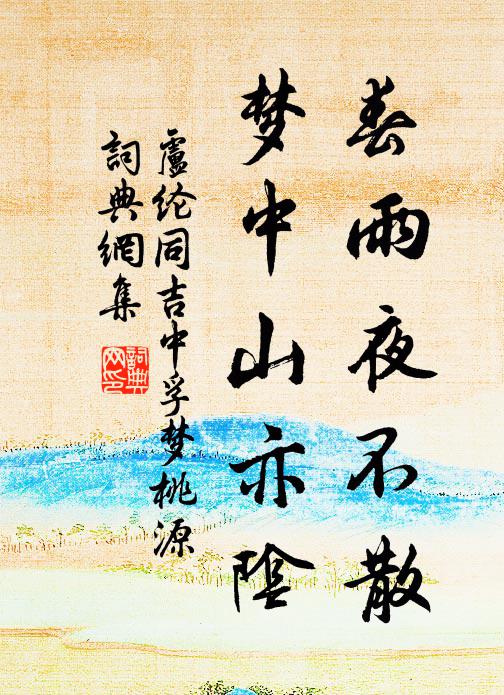 春雨夜不散
梦中山亦陰
盧纶同吉中孚梦桃源
詞典網集
詞典
网印